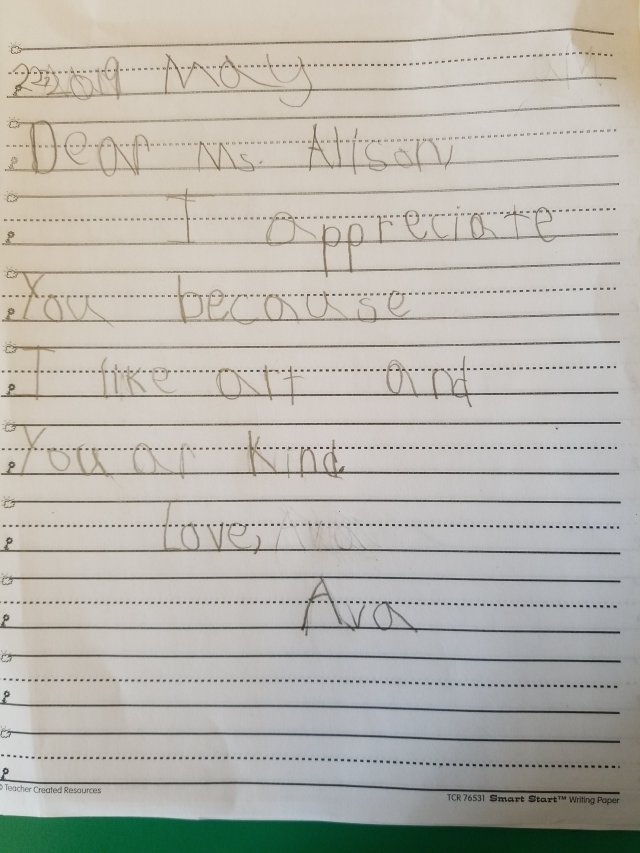 2019 May
Dear Ms. Alison,
I appreciate
You because
I like art and
You ar kind.
Love,
Ava
Teacher Created Resources
TCR 76531 Smart Start™ Writing Paper